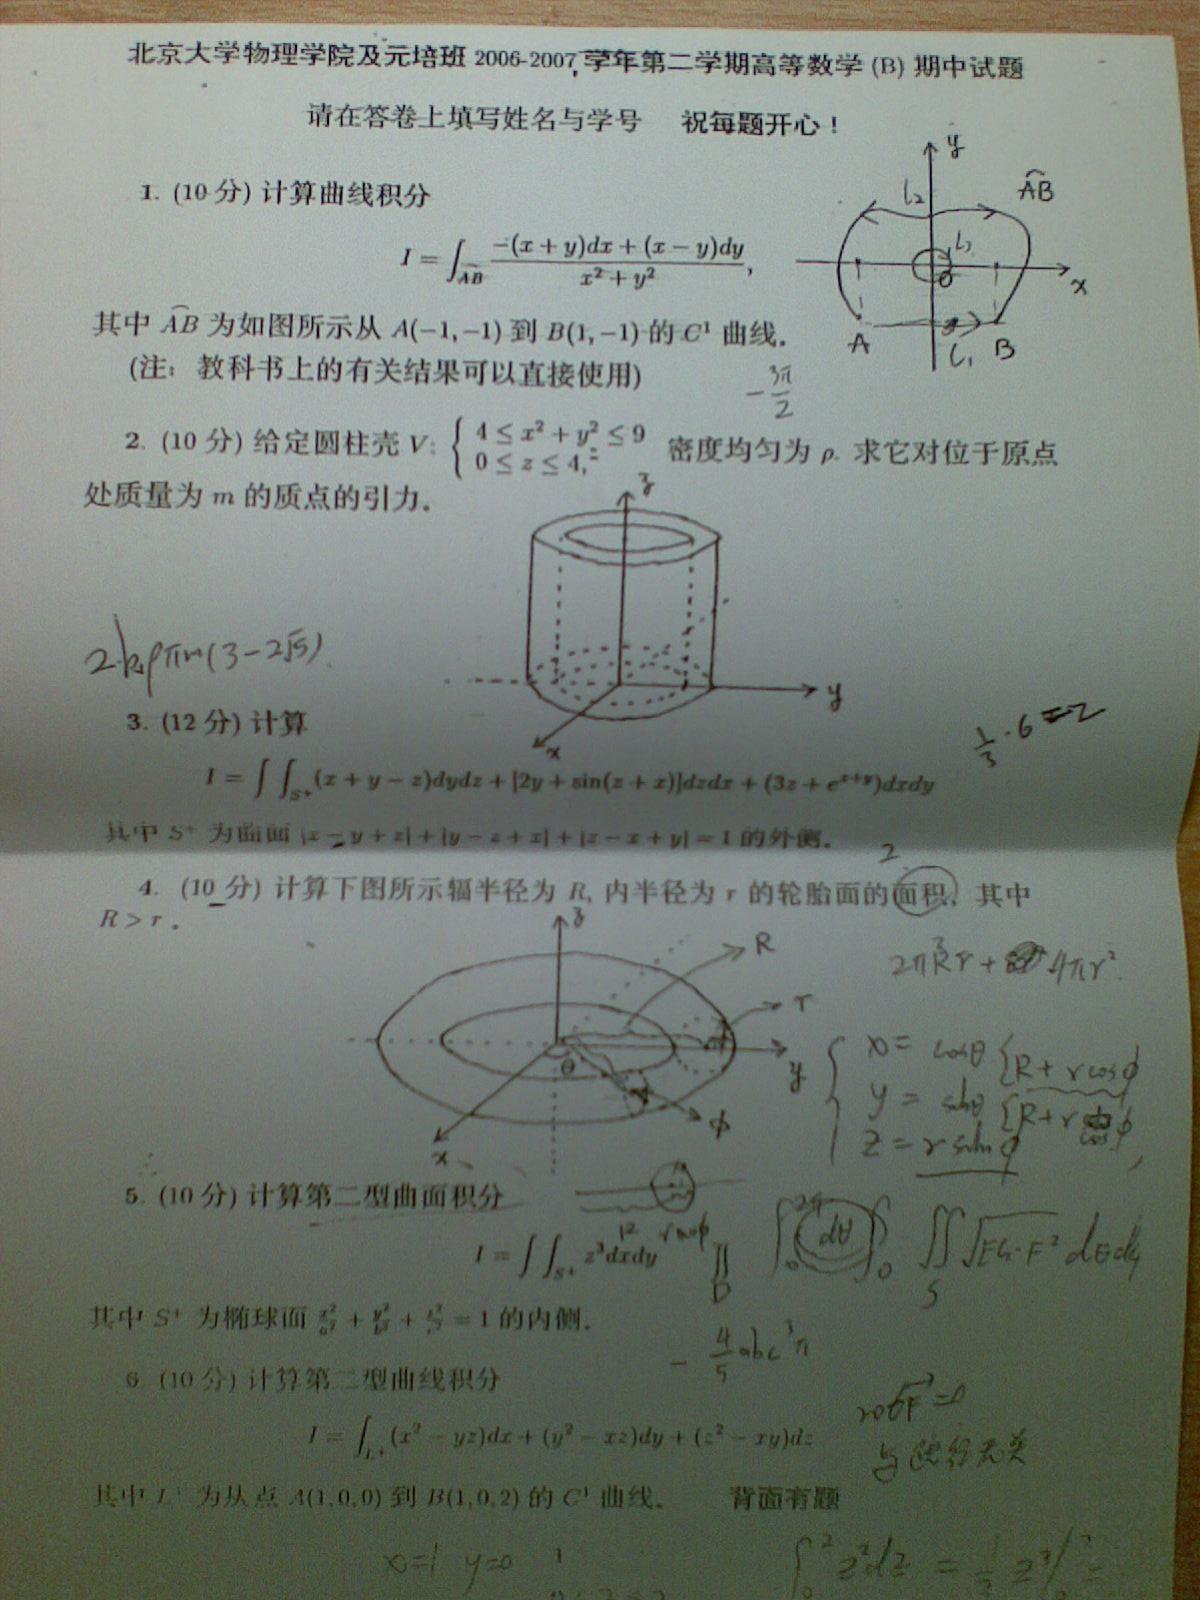 北京大学物理学院及元培班 2006-2007 学年第二学期高等数学 (B) 期中试题
请在答卷上填写姓名与学号 祝每题开心！
1. (10 分) 计算曲线积分
I = ∫_{AB} (-(x + y)dx + (x - y)dy)/(x² + y²),
y
L₂
AB
x
A
L₁
B
其中 AB 为如图所示从 A(-1, -1) 到 B(1, -1) 的 C¹ 曲线.
(注: 教科书上的有关结果可以直接使用)
-3π/2
2. (10 分) 给定圆柱壳 V: { 4 ≤ x² + y² ≤ 9
0 ≤ z ≤ 4, 密度均匀为 ρ. 求它对位于原点
处质量为 m 的质点的引力.
z
y
x
2kρπm(3-2√5)
3. (12 分) 计算
1/3 · 6 = 2
I = ∫∫_{S⁺} (x + y - z)dydz + [2y + sin(z + x)]dzdx + (3z + e^{x+y})dxdy
其中 S⁺ 为曲面 |x - y + z| + |y - z + x| + |z - x + y| = 1 的外侧.
2
4. (10 分) 计算下图所示辐半径为 R, 内半径为 r 的轮胎面的面积, 其中
R > r .
z
R
r
y
θ
φ
x
x = cosθ [R + r cosφ
y = sinθ [R + r cosφ
z = r sinφ
5. (10 分) 计算第二型曲面积分
I = ∫∫_{S⁺} z³dxdy
∬ √EG-F² dθdφ
S
其中 S⁺ 为椭球面 x²/a² + y²/b² + z²/c² = 1 的内侧.
- 4/5 abc³π
6. (10 分) 计算第二型曲线积分
rot F = 0
I = ∫_{L⁺} (x² - yz)dx + (y² - xz)dy + (z² - xy)dz
与路径无关
其中 L⁺ 为从点 A(1, 0, 0) 到 B(1, 0, 2) 的 C¹ 曲线. 背面有题
x=1 y=0
∫₀² z²dz = 1/3 z³